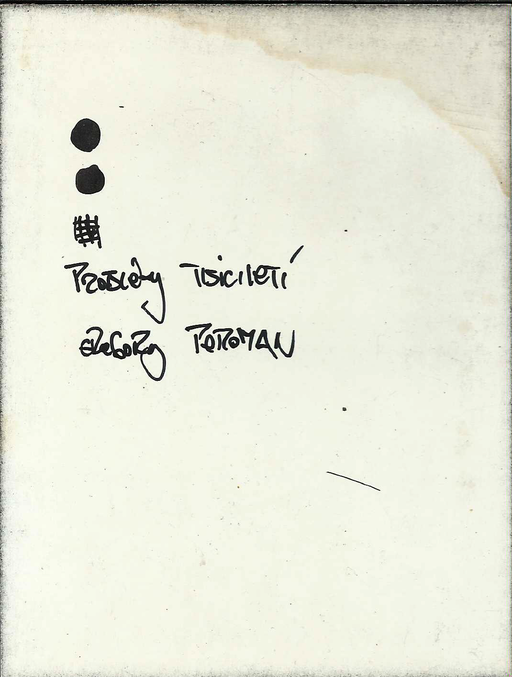 Problémy TISICILETÍ
GREGORY PEROMAN